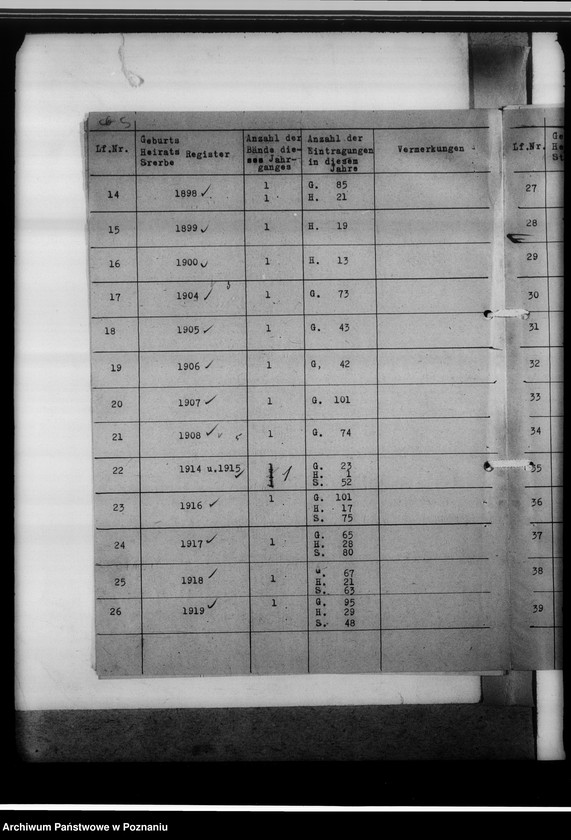 Lf.Nr. Geburts Heirats Srerbe Register Anzahl der Bände die- sen Jahr- ganges Anzahl der Eintragungen in diesem Jahre Vermerkungen
14 1898 ✓ 1 G. 85
1 H. 21
15 1899 ✓ 1 H. 19
16 1900 ✓ 1 H. 13
17 1904 ✓ 1 G. 73
18 1905 ✓ 1 G. 43
19 1906 ✓ 1 G, 42
20 1907 ✓ 1 G. 101
21 1908 ✓ 1 G. 74
22 1914 u.1915 ✓ 1 G. 23
H. 1
S. 52
23 1916 ✓ 1 G. 101
H. 17
S. 75
24 1917 ✓ 1 G. 65
H. 28
S. 80
25 1918 ✓ 1 67
H. 21
S. 63
26 1919 ✓ 1 G. 95
H. 29
S. 48
Lf.Nr.
27
28
29
30
31
32
33
34
35
36
37
38
39
Archiwum Państwowe w Poznaniu